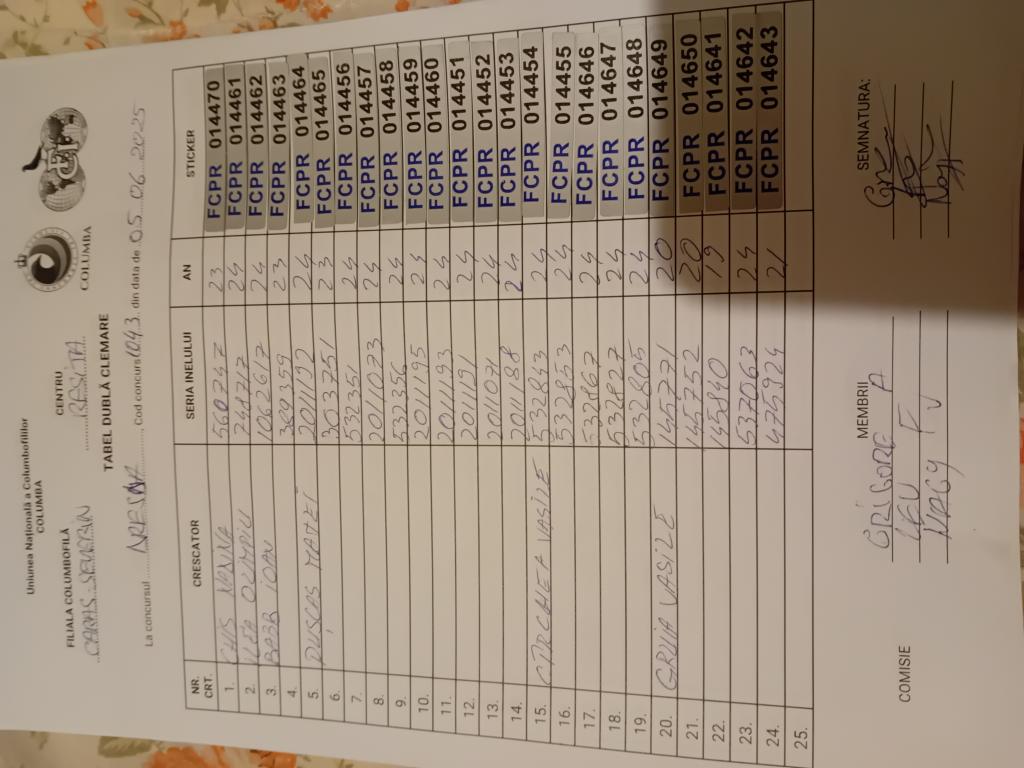 Uniunea Națională a Columbofililor
COLUMBA
COLUMBA
FCPR
FILIALA COLUMBOFILĂ CENTRU
CARAS-SEVERIN RESITA
TABEL DUBLĂ CLEMARE
La concursul, Cod concurs 1043 din data de 05.06.2025
NR. CRT. CRESCATOR SERIA INELULUI AN STICKER
1. NONNA 560747 23 FCPR 014470
2. VLEA OLIMPIU 748717 24 FCPR 014461
3. BABA IOAN 1062617 24 FCPR 014462
4. 369359 23 FCPR 014463
5. MATEI 2011192 24 FCPR 014464
6. 303751 23 FCPR 014465
7. 532351 24 FCPR 014456
8. 2011073 24 FCPR 014457
9. 532356 24 FCPR 014458
10. 2011195 24 FCPR 014459
11. 2011193 24 FCPR 014460
12. 2011191 24 FCPR 014451
13. 2011071 24 FCPR 014452
14. 2011188 24 FCPR 014453
15. VASILE 532843 24 FCPR 014454
16. 532853 24 FCPR 014455
17. 532867 24 FCPR 014646
18. 532827 24 FCPR 014647
19. 532805 24 FCPR 014648
20. GRUIA VASILE 145771 20 FCPR 014649
21. 145752 20 FCPR 014650
22. 145840 19 FCPR 014641
23. 537063 24 FCPR 014642
24. 475924 21 FCPR 014643
25.
COMISIE MEMBRII SEMNATURA:
GRIGORE A
LEU F
NAGY V